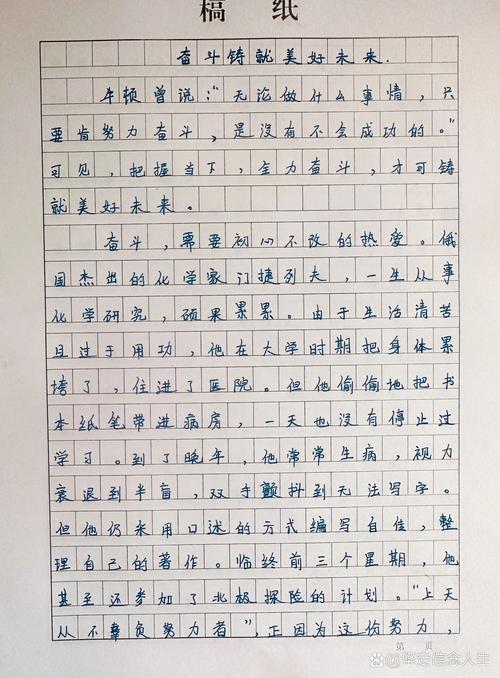 稿 纸
奋斗铸就美好未来.
牛顿曾说:“无论做什么事情,只
要肯努力奋斗,是没有不会成功的。”
可见,把握当下,全力奋斗,才可铸
就美好未来。
奋斗,需要初心不改的热爱。俄
国杰出的化学家门捷列夫,一生从事
化学研究,硕果累累。由于生活清苦
且过于用功,他在大学时期把身体累
垮了,住进了医院。但他偷偷地把书
本纸笔带进病房,一天也没有停止过
学习。到了晚年,他常常生病,视力
衰退到半盲,双手颤抖到无法写字。
但他仍采用口述的方式编写自传,整
理自己的著作。临终前三个星期,他
甚至还参加了北极探险的计划。“上天
从不辜负努力者”,正因为这份努力,
第 页
知乎 @坚定信念人生